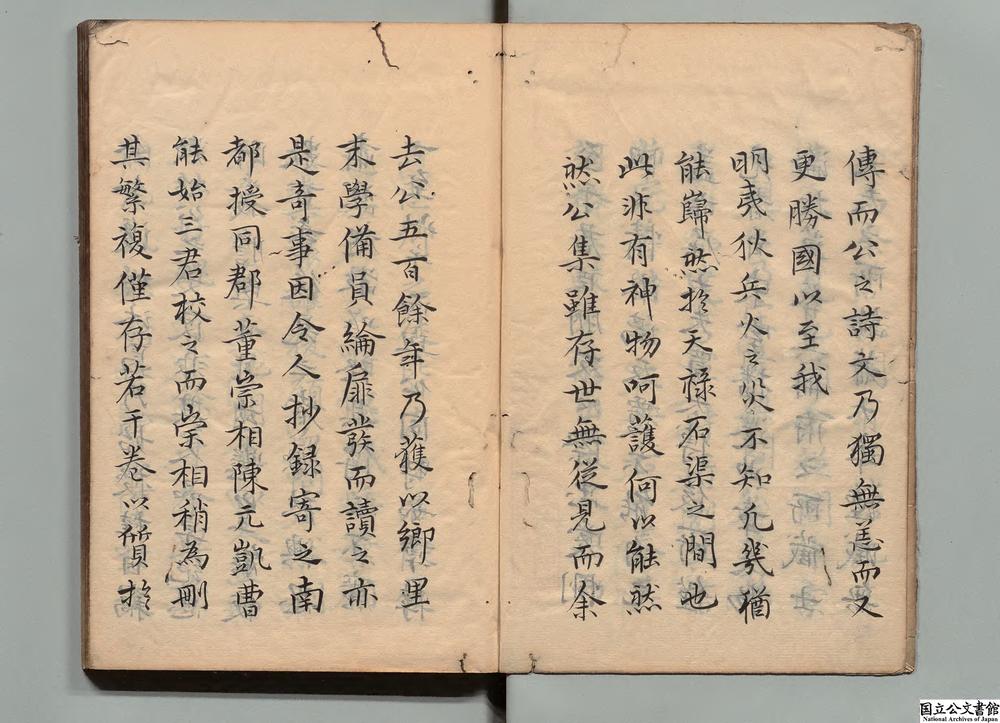 傳而公之詩文乃獨無恙而又
更勝國以至我
明夷狄兵火之災不知凡幾猶
能巋然於天祿石渠之間也
此非有神物呵護何以能然
然公集雖存世無從見而余
去公五百餘年乃獲以鄉里
末學備員綸扉發而讀之亦
是奇事因令人抄録寄之南
都授同郡董崇相陳元凱曹
能始三君校之而崇相稍為刪
其繁複僅存若干卷以質於
国立公文書館
National Archives of Japan